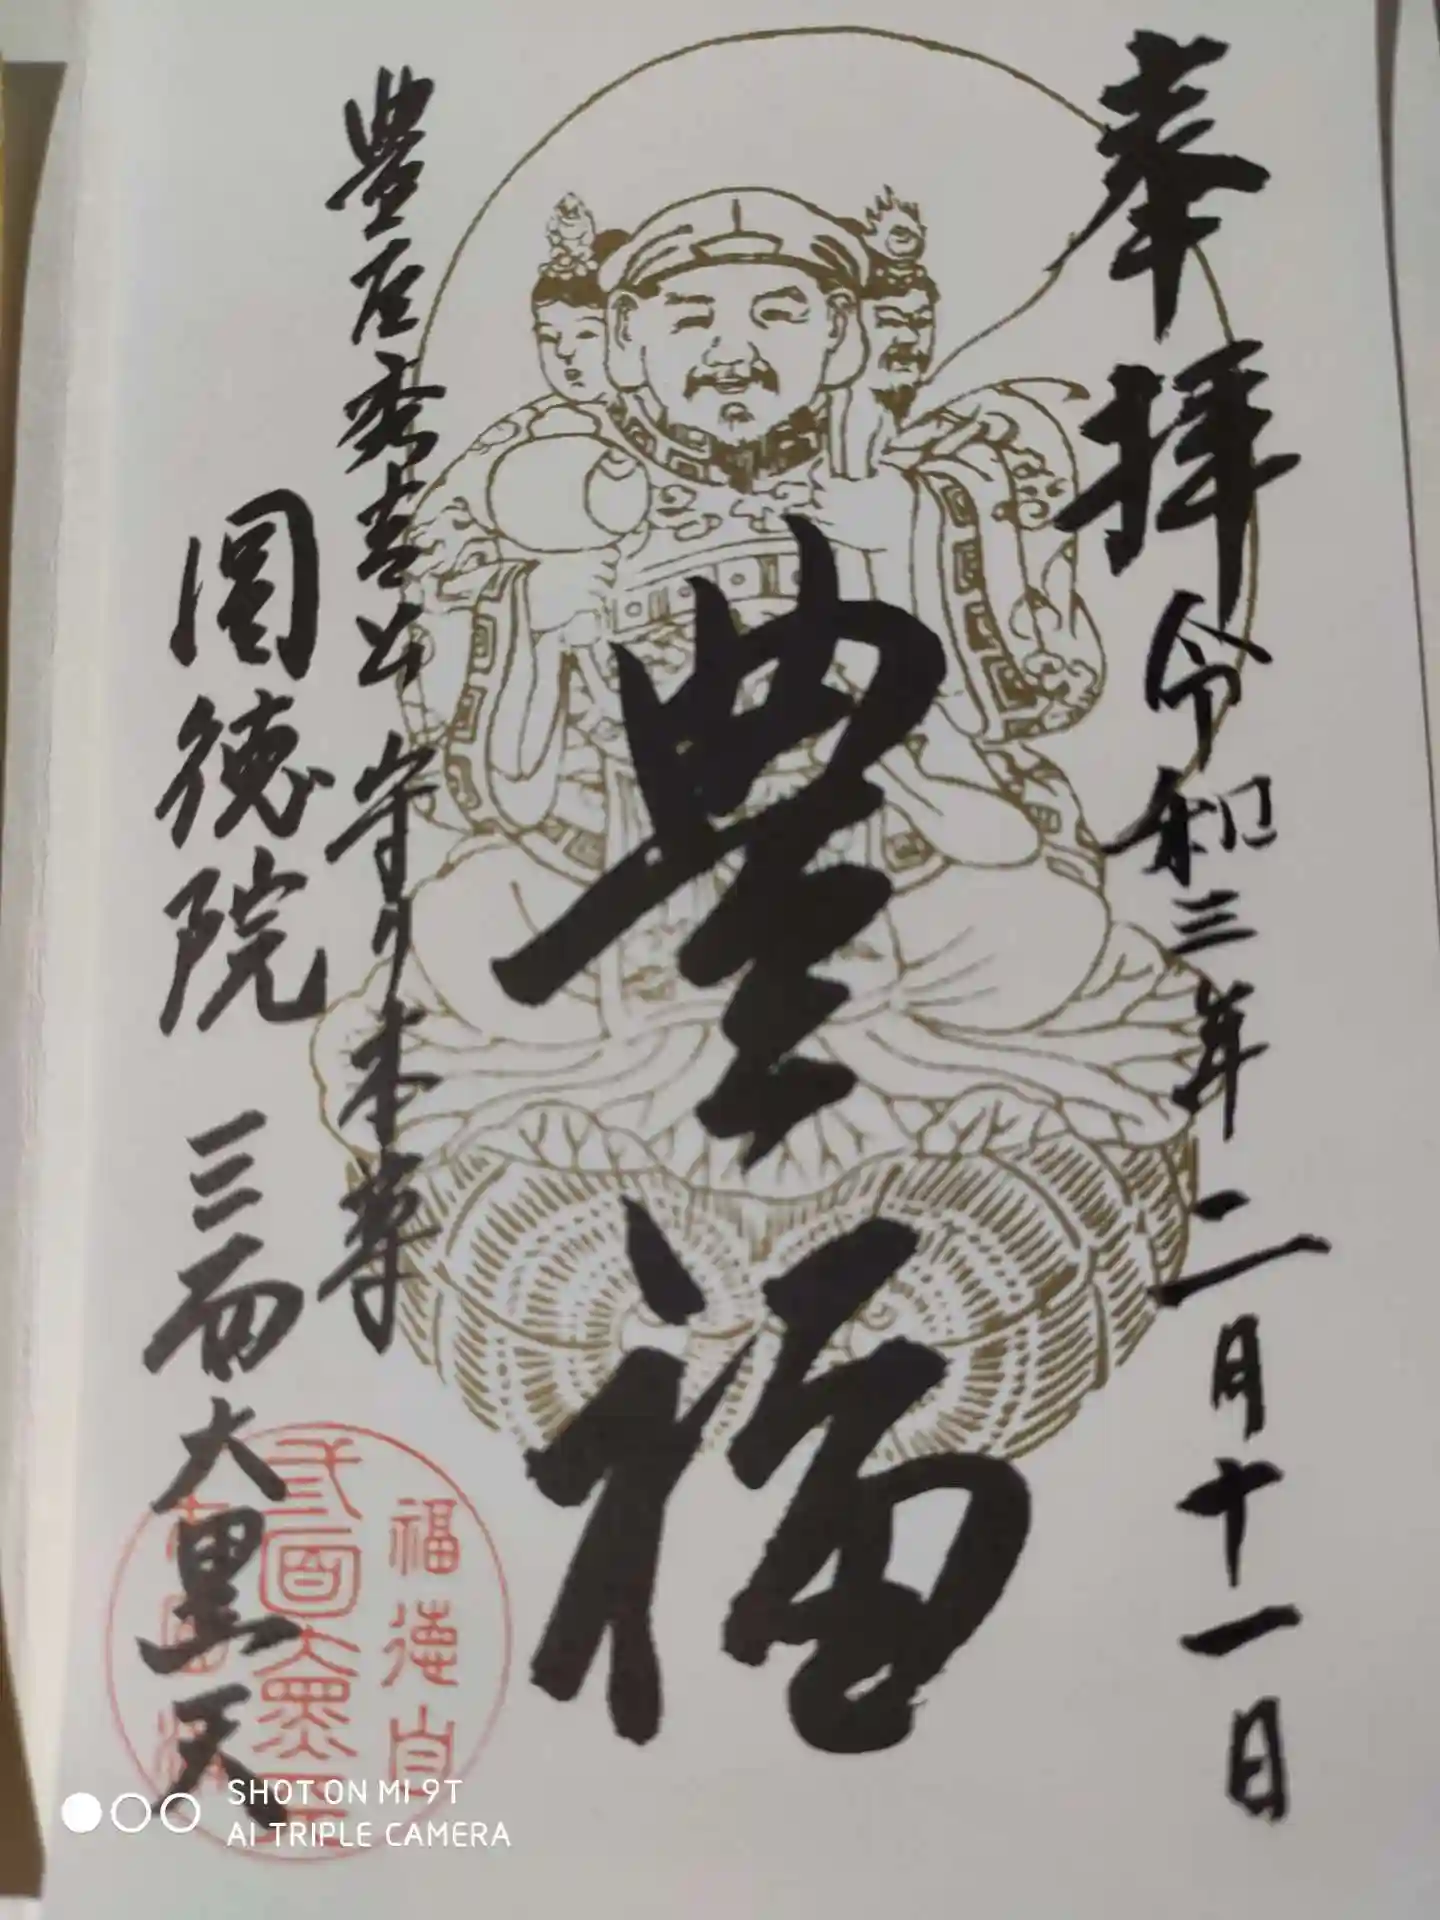 奉拝
令和三年二月十一日
豊福
豊臣秀吉公 守り本尊
圓徳院 三面大黒天
福徳自
SHOT ON MI 9T
AI TRIPLE CAMERA